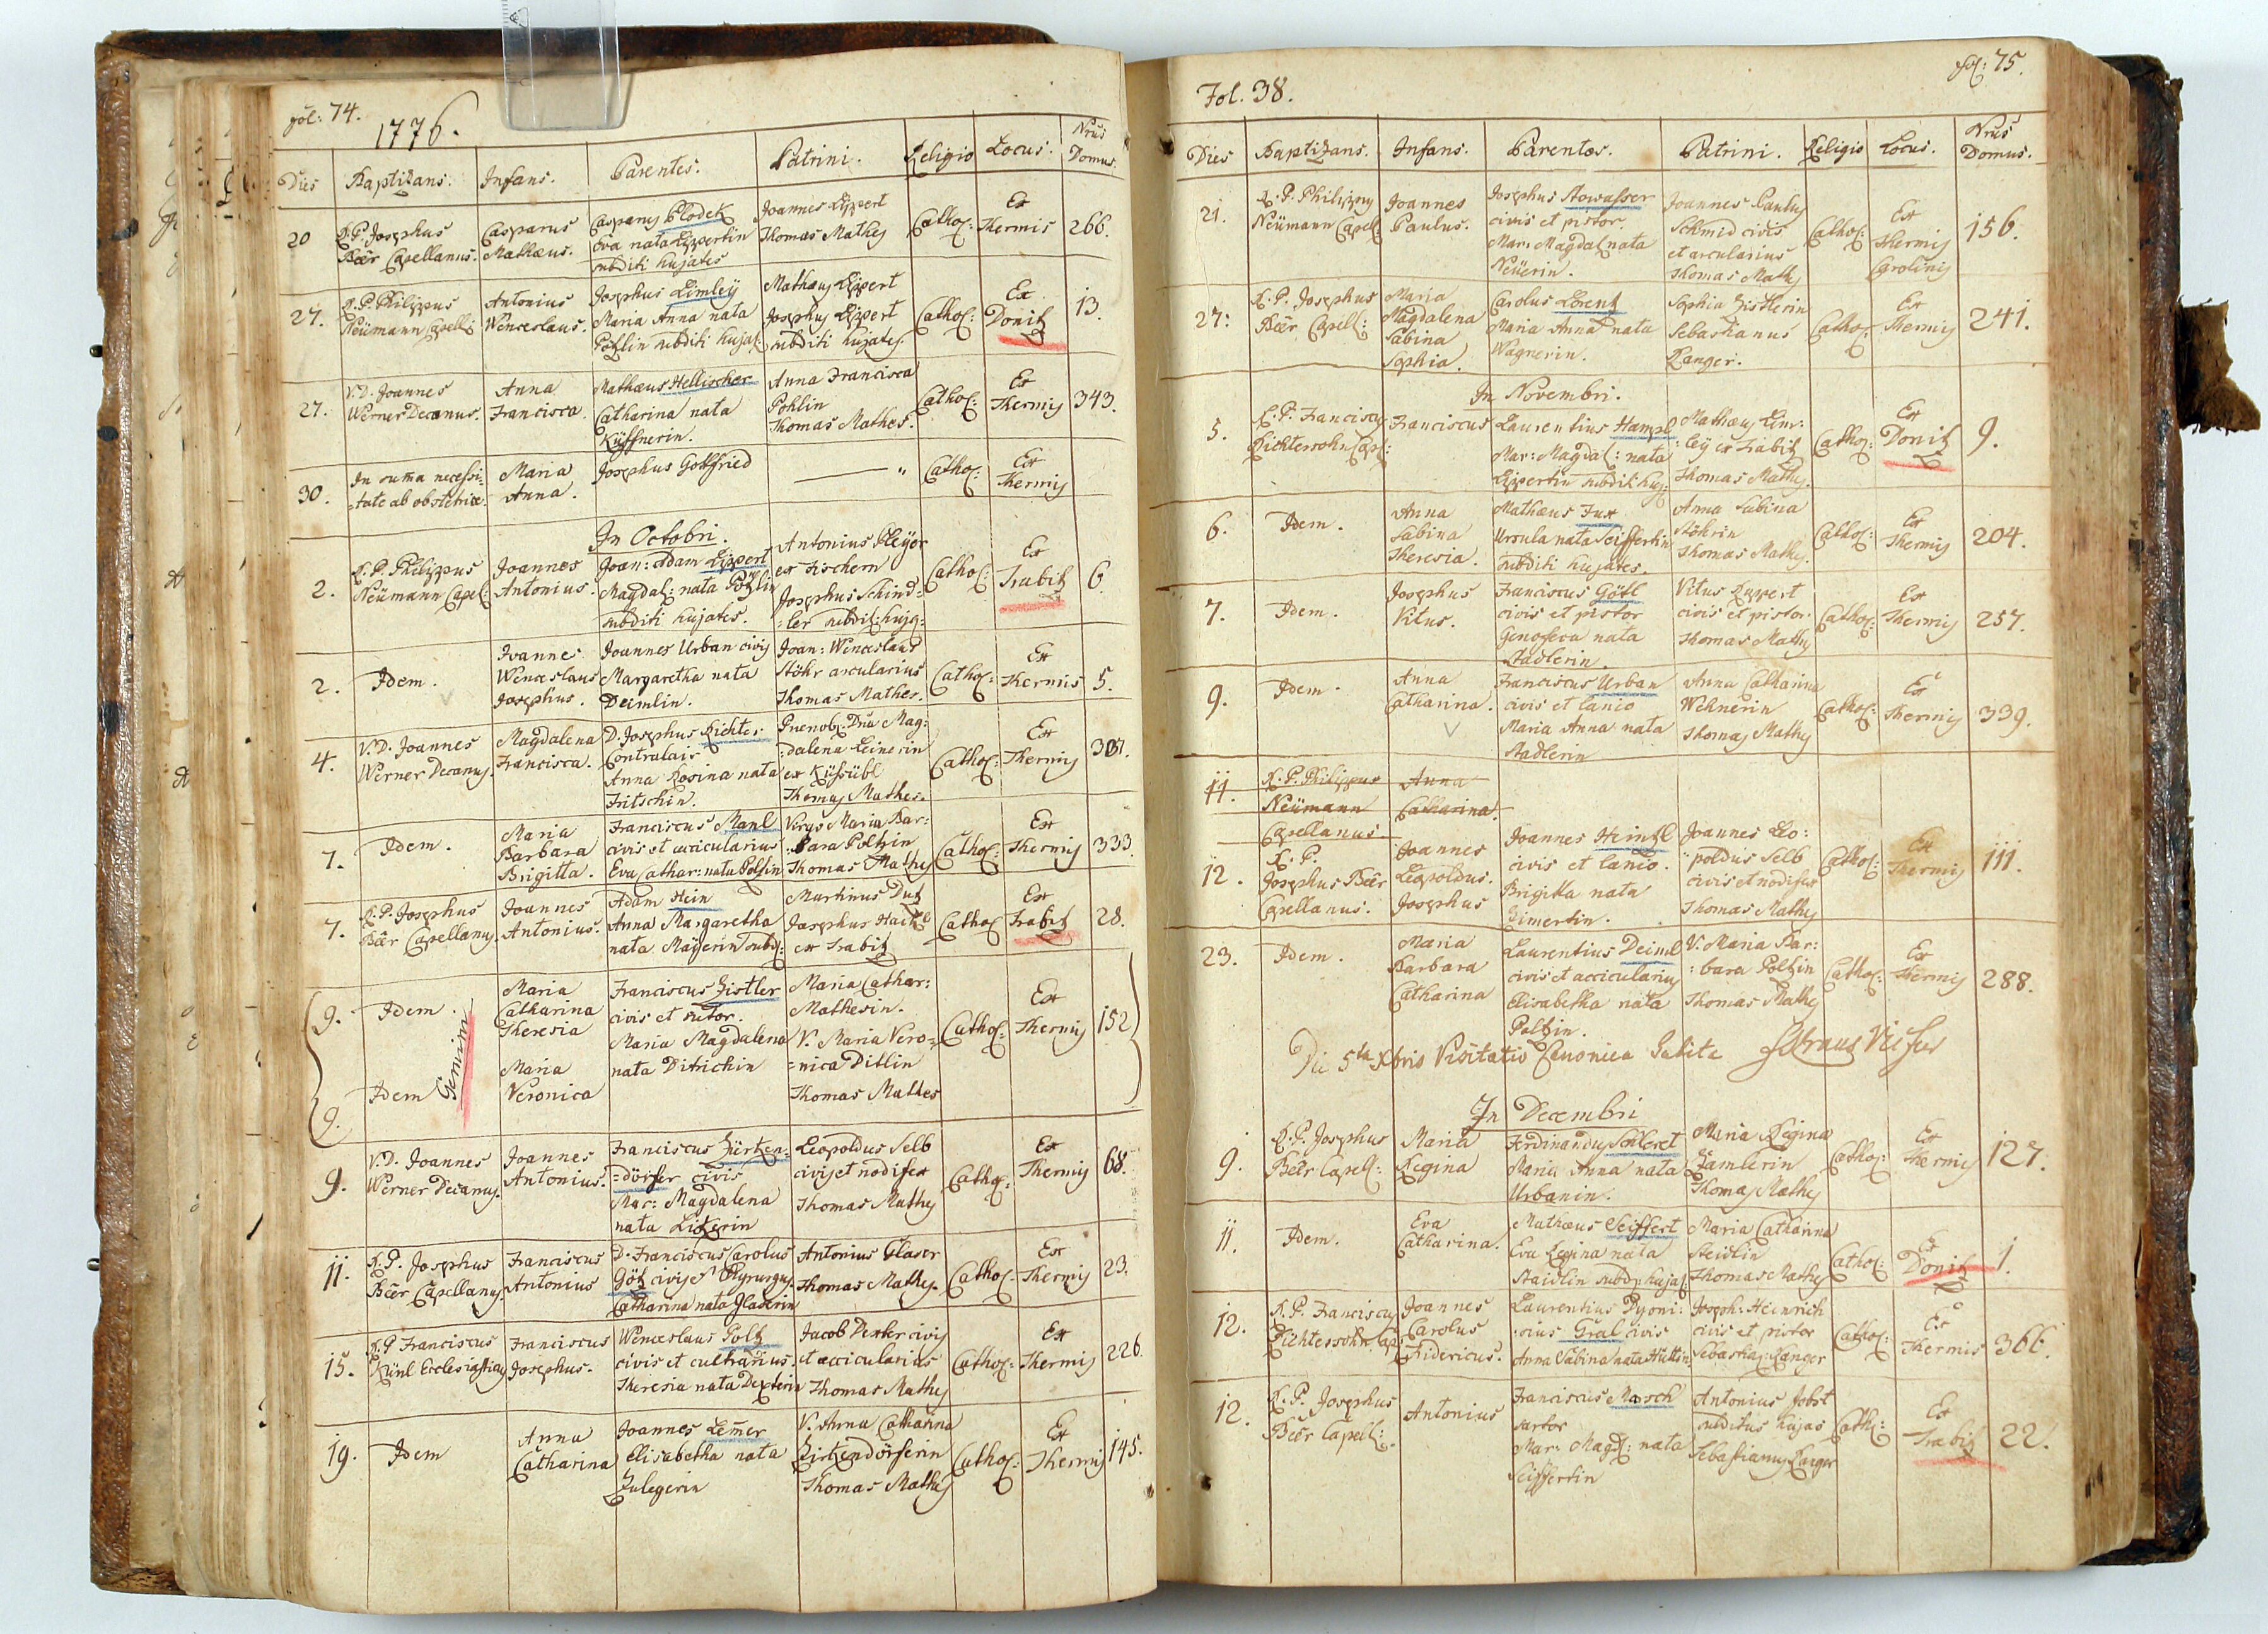 fol: 74.
1776.
Dies Baptizans. Infans. Parentes. Patrini. Religio Locus. Nrus Domus.
20 R. P. Josephus Casparus Casparus Plodek Joannes Lippert Cathol: Ex 266.
Beer Capellanus. Mathæus. Eva nata Lippertin Thomas Mathes Thermis
subditi hujates
27. R. P. Philippus Antonius Josephus Limley Mathæus Lippert Cathol: Ex 13.
Neümann Capell: Wenceslaus. Maria Anna nata Josephus Lippert Donitz
subditi hujat: subditi hujates.
27. V. D. Joannes Anna Mathæus Hellischer Anna Francisca Cathol: Ex 343.
Werner Decanus. Francisca. Catharina nata Pohlin Thermis
Küffnerin. Thomas Mathes.
30. In suma necessi- Maria Josephus Gottfried — " Cathol: Ex
tate ab obstetrice. Anna. Thermis
In Octobri.
2. R. P. Philippus Joannes Joan: Adam Lippert Antonius Pleyer Cathol: Ex 6.
Neümann Capel: Antonius. Magdal: nata Pölzlin ex Fischern Trabitz
subditi hujates. Josephus Schind=
=ler subdit: hujq:
2. Idem. Joannes Joannes Urban civis Joan: Wenceslaus Cathol: Ex 5.
Wenceslaus Margaretha nata Stöhr arcularius Thermis
Josephus. Deimlin. Thomas Mathes.
4. V. D. Joannes Magdalena D. Josephus Richter Prænob: Dña Mag: Cathol: Ex
Werner Decanus. Francisca. Contralair :dalena Leinerin Thermis
Anna Rosina nata ex Küfsübl
Fritschin. Thomas Mathes.
7. Idem. Maria Franciscus Manl Virgo Maria Bar: Cathol: Ex 333.
Barbara civis et accicularius :bara Poltzin Thermis
Brigitta. Eva Cathar: nata Poltzin Thomas Mathes
7. R. P. Josephus Joannes Adam Hein Martinus Dutz Cathol Ex 28.
Beer Capellanus. Antonius. Anna Margaretha Josephus Trabitz
nata Mayerin subd: ex Trabitz
9. Idem. Maria Franciscus Zistler Maria Cathar: Cathol: Ex 152
Catharina civis et sutor. Mathesin. Thermis
Theresia Maria Magdalena V. Maria Vero=
Gemini
9. Idem Maria nata Ditrichin =nica Ditlin
Veronica Thomas Mathes
9. V. D. Joannes Joannes Franciscus Zürken= Leopoldus Selb Cathol: Ex 68.
Werner Decanus. Antonius. =dörfer civis civis et nodifex Thermis
Mar: Magdalena Thomas Mathes
nata
11. R. P. Josephus Franciscus D. Franciscus Carolus Antonius Glaser Cathol: Ex 23.
Beer Capellanus. Antonius Götz civis et Chyrurgus. Thomas Mathes. Thermis
Catharina nata Glaserin
15. R. P Franciscus Franciscus Wenceslaus Poltz Jacob Dexler civis Cathol: Ex 226.
Künl Ecclesiasticus Josephus. civis et cultrarius. et accicularius Thermis
Theresia nata Dexlerin Thomas Mathes
19. Idem Anna Joannes Lemer V. Anna Catharina Cathol: Ex 145.
Catharina Elisabetha nata Zirkendörferin Thermis
Zulegerin Thomas Mathes
Fol. 38.
fol: 75.
Dies Baptizans. Infans. Parentes. Patrini. Religio Locus. Nrus Domus.
21. R. P. Philippus Joannes Josephus Stowasser Joannes Paulus Cathol: Ex 156.
Neümann Capell: Paulus. civis et pistor. Schmid civis Thermis
Mar: Magdal nata et arcularius Carolinis
Neüerin. Thomas Mathes
27: R. P. Josephus Maria Carolus Lorentz Sophia Zistlerin Cathol: Ex 241.
Beer Capell: Magdalena Maria Anna nata Sebastianus Thermis
Sabina Wagnerin. Langer.
Sophia.
In Novembri.
5. R. P. Franciscus Franciscus Laurentius Hampl Mathæus Lim: Cathol: Ex 9.
Richtersohn Cap: Mar: Magdal: nata :ley ex Trabitz Donitz
Lippertin subdit: huj: Thomas Mathes.
6. Idem. Anna Mathæus Fux Anna Sabina Cathol: Ex 204.
Sabina Ursula nata Seiffertin Stöhrin Thermis
Theresia. subditi hujates. Thomas Mathes.
7. Idem. Josephus Franciscus Götl Vitus Lippert Cathol: Ex 257.
Vitus. civis et pistor civis et pistor. Thermis
Genofeva nata Thomas Mathes
Stadlerin.
9. Idem. Anna Franciscus Urban Anna Catharina Cathol: Ex 339.
Catharina. civis et lanio Wehnerin Thermis
Maria Anna nata Thomas Mathes
Stadlerin
11. R. P. Philippus Anna
Neümann Catharina.
Capellanus
12. R. P. Joannes Joannes Heintzl Joannes Leo: Cathol: Ex 111.
Josephus Beer Leopoldus. civis et lanio. :poldus Selb Thermis
Capellanus. Josephus Brigitta nata civis et nodifex
Zimertin. Thomas Mathes
23. Idem. Maria Laurentius Deiml V. Maria Bar: Cathol: Ex 288.
Barbara civis et accicularius :bara Poltzin Thermis
Catharina Elisabetha nata Thomas Mathes
Poltzin.
Die 5ta Xbris Visitatio Canonica habita
In Decembri
9. R. P. Josephus Maria Ferdinandus Schleret Maria Regina Cathol: Ex 127.
Beer Capell: Regina Maria Anna nata Zamlerin Thermis
Urbanin. Thomas Mathes
11. Idem. Eva Mathæus Seiffert Maria Catharina Cathol: Ex 1.
Catharina. Eva Regina nata Steidlin Donitz
Staidlin subd: hujat: Thomas Mathes
12. R. P. Franciscus Joannes Laurentius Dyoni: Joseph: Heinrich Cathol: Ex 366.
Richtersohn Cap: Carolus :sius Gral civis civis et pistor Thermis
Fridericus. Anna Sabina nata Hüttin Sebastia: Langer
12. R. P. Josephus Antonius Franciscus Mosch Antonius Jobst Cathol: Ex 22.
Beer Capell: sartor subditus hujas Trabitz
Mar: Magd: nata Sebastianus Langer
Seiffertin